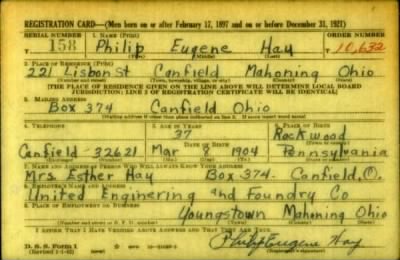 REGISTRATION CARD—(Men born on or after February 17, 1897 and on or before December 31, 1921)
SERIAL NUMBER 1. NAME (Print) ORDER NUMBER
T 158 Philip Eugene Hay T 10,632
(First) (Middle) (Last)
2. PLACE OF RESIDENCE (Print)
221 Lisbon St Canfield Mahoning Ohio
(Number and street) (Town, township, village, or city) (County) (State)
[THE PLACE OF RESIDENCE GIVEN ON THE LINE ABOVE WILL DETERMINE LOCAL BOARD
JURISDICTION; LINE 2 OF REGISTRATION CERTIFICATE WILL BE IDENTICAL]
3. MAILING ADDRESS
Box 374 Canfield Ohio
[Mailing address if other than place indicated on line 2. If same insert word same]
4. TELEPHONE 5. AGE IN YEARS 6. PLACE OF BIRTH
37 Rockwood
DATE OF BIRTH (Town or county)
Canfield - 32621 Mar 1904 Pennsylvania
(Exchange) (Number) (Mo.) (Day) (Yr.) (State or country)
7. NAME AND ADDRESS OF PERSON WHO WILL ALWAYS KNOW YOUR ADDRESS
Mrs Esther Hay Box 374- Canfield, O.
8. EMPLOYER'S NAME AND ADDRESS
United Enginering and Foundry Co
9. PLACE OF EMPLOYMENT OR BUSINESS
Youngstown Mahoning Ohio
(Number and street or R. F. D. number) (Town) (County) (State)
I AFFIRM THAT I HAVE VERIFIED ABOVE ANSWERS AND THAT THEY ARE TRUE.
D. S. S. Form 1
Philip Eugene Hay